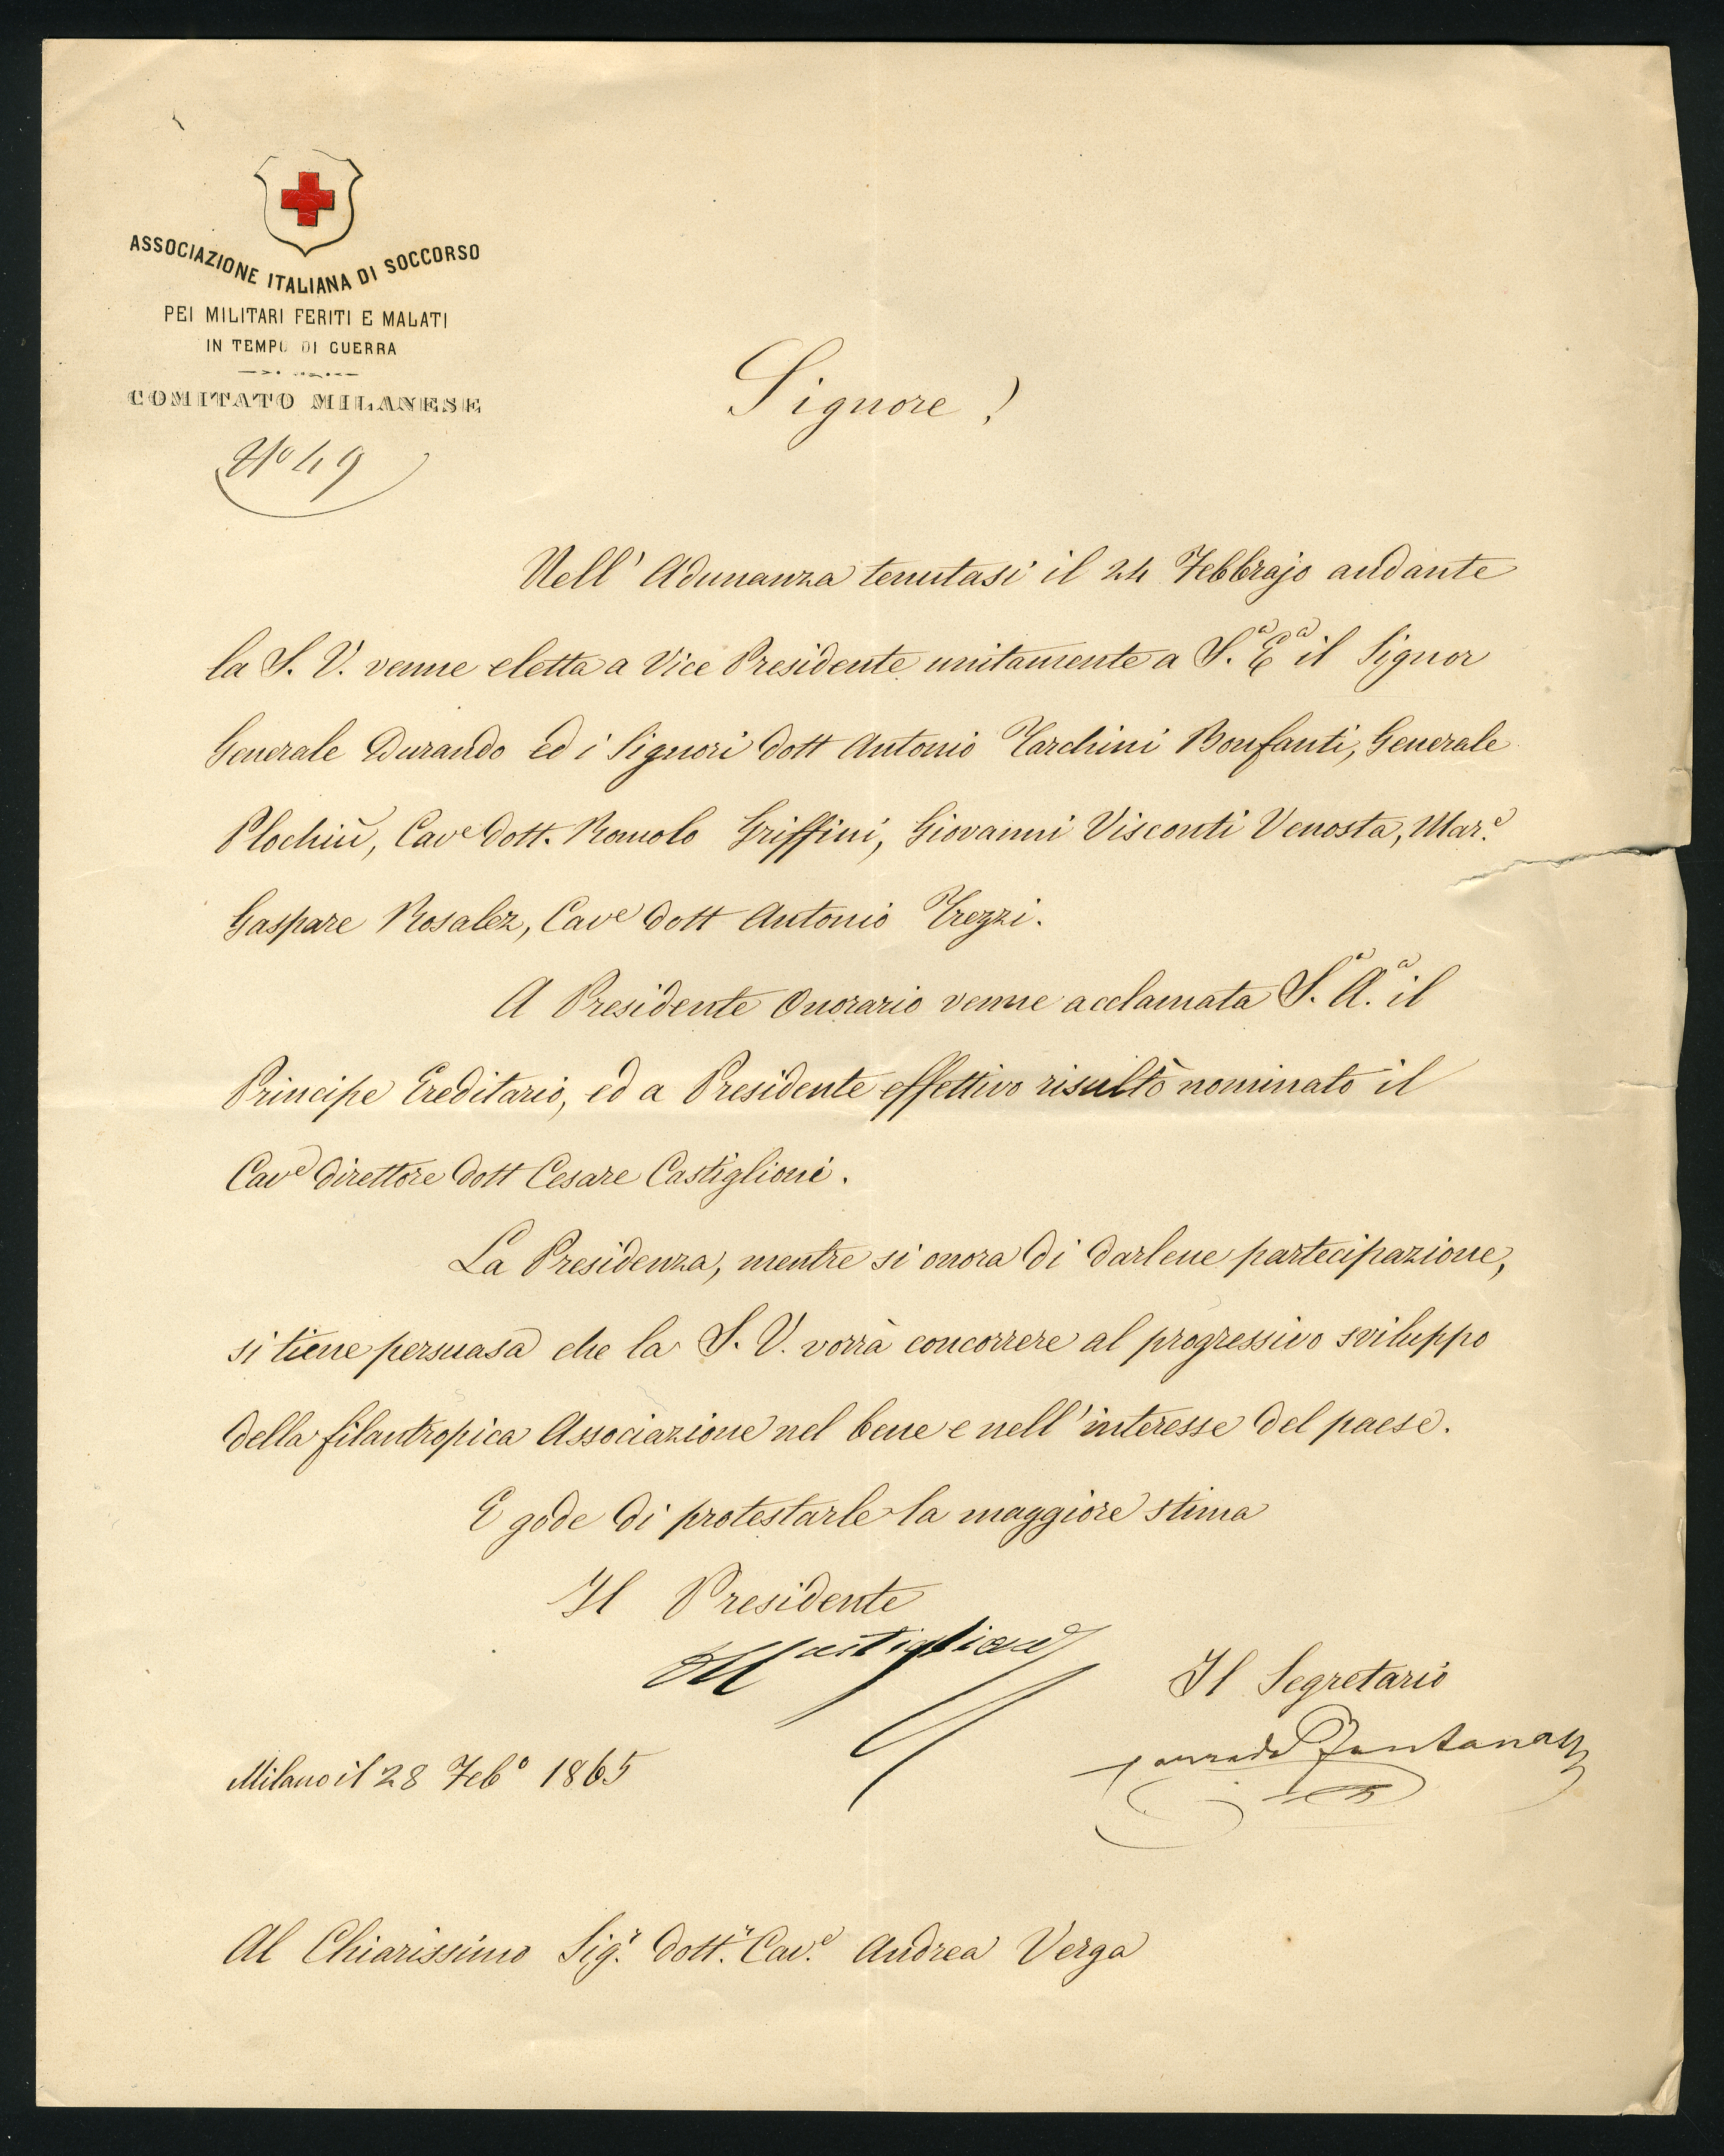 ASSOCIAZIONE ITALIANA DI SOCCORSO
PEI MILITARI FERITI E MALATI
IN TEMPO DI GUERRA
COMITATO MILANESE
Nº 49
Signore!
Nell' Adunanza tenutasi il 24 Febbrajo andante
la S. V. venne eletta a Vice Presidente unitamente a S.ª Eª il Signor
Generale Durando ed i Signori Dott Antonio Tarchini Bonfanti, Generale
Plochiù, Cavᵉ Dott. Romolo Griffini, Giovanni Visconti Venosta, Mar.ᵉ
Gaspare Rosalez, Cavᵉ Dott Antonio Trezzi.
A Presidente Onorario venne acclamata S.ª A.ª il
Principe Ereditario, ed a Presidente effettivo risultò nominato il
Cavᵉ Direttore Dott Cesare Castiglioni.
La Presidenza, mentre si onora di darlene partecipazione,
si tiene persuasa che la S. V. vorrà concorrere al progressivo sviluppo
della filantropica Associazione nel bene e nell'interesse del paese.
E gode di protestarle la maggiore stima
Il Presidente
Castiglioni
Il Segretario
Milano il 28 Febº 1865
Al Chiarissimo Sig.ʳ Dott.ʳ Cav.ᵉ Andrea Verga